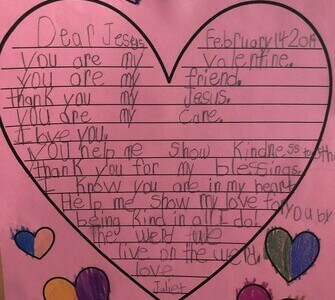 Dear Jesus February 14 2019
you are my valentine.
you are my friend.
thank you my Jesus.
you are my care.
I love you.
you help me show kindness
thank you for my blessings.
I know you are in my heart
Help me show my love for you by
being kind in all I do!
the werld
live on the werld.
love
Juliet